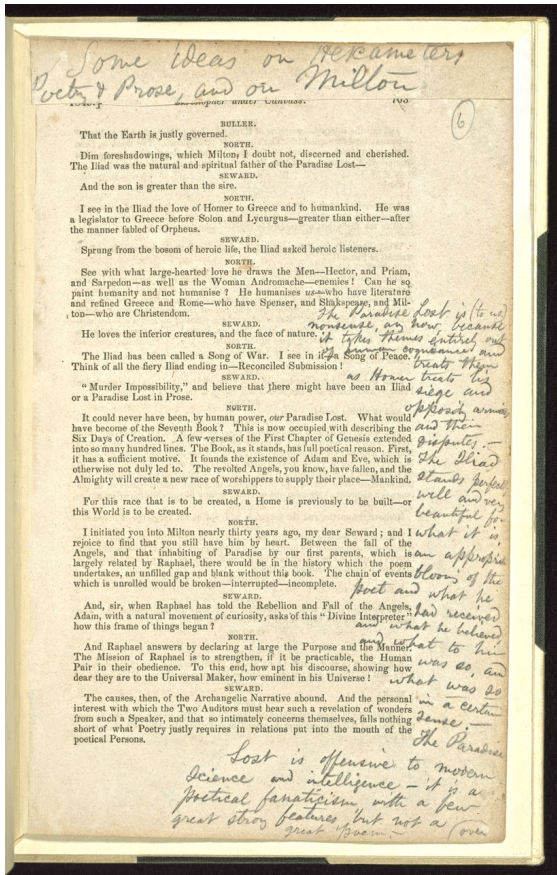 Some ideas on Hexameters
Poetry & Prose, and on Milton
1849.] Christopher under Canvass. 763
6
BULLER.
That the Earth is justly governed.
NORTH.
Dim foreshadowings, which Milton, I doubt not, discerned and cherished.
The Iliad was the natural and spiritual father of the Paradise Lost—
SEWARD.
And the son is greater than the sire.
NORTH.
I see in the Iliad the love of Homer to Greece and to humankind. He was
a legislator to Greece before Solon and Lycurgus—greater than either—after
the manner fabled of Orpheus.
SEWARD.
Sprung from the bosom of heroic life, the Iliad asked heroic listeners.
NORTH.
See with what large-hearted love he draws the Men—Hector, and Priam,
and Sarpedon—as well as the Woman Andromache—enemies! Can he so
paint humanity and not humanise? He humanises us—who have literature
and refined Greece and Rome—who have Spenser, and Shakspeare, and Mil-
ton—who are Christendom.
SEWARD.
He loves the inferior creatures, and the face of nature.
NORTH.
The Iliad has been called a Song of War. I see in it—a Song of Peace.
Think of all the fiery Iliad ending in—Reconciled Submission!
SEWARD.
"Murder Impossibility," and believe that there might have been an Iliad
or a Paradise Lost in Prose.
NORTH.
It could never have been, by human power, our Paradise Lost. What would
have become of the Seventh Book? This is now occupied with describing the
Six Days of Creation. A few verses of the First Chapter of Genesis extended
into so many hundred lines. The Book, as it stands, has full poetical reason. First,
it has a sufficient motive. It founds the existence of Adam and Eve, which is
otherwise not duly led to. The revolted Angels, you know, have fallen, and the
Almighty will create a new race of worshippers to supply their place—Mankind.
SEWARD.
For this race that is to be created, a Home is previously to be built—or
this World is to be created.
NORTH.
I initiated you into Milton nearly thirty years ago, my dear Seward; and I
rejoice to find that you still have him by heart. Between the fall of the
Angels, and that inhabiting of Paradise by our first parents, which is
largely related by Raphael, there would be in the history which the poem
undertakes, an unfilled gap and blank without this book. The chain of events
which is unrolled would be broken—interrupted—incomplete.
SEWARD.
And, sir, when Raphael has told the Rebellion and Fall of the Angels,
Adam, with a natural movement of curiosity, asks of this "Divine Interpreter"
how this frame of things began?
NORTH.
And Raphael answers by declaring at large the Purpose and the Manner.
The Mission of Raphael is to strengthen, if it be practicable, the Human
Pair in their obedience. To this end, how apt his discourse, showing how
dear they are to the Universal Maker, how eminent in his Universe!
SEWARD.
The causes, then, of the Archangelic Narrative abound. And the personal
interest with which the Two Auditors must hear such a revelation of wonders
from such a Speaker, and that so intimately concerns themselves, falls nothing
short of what Poetry justly requires in relations put into the mouth of the
poetical Persons.
The Paradise Lost is (to us)
nonsense, any how, because
it takes themes entirely out
of human cognizance and
treats them
as Homer treats his
siege and
opposing armies
and their
disputes.—
The Iliad
stands perfectly
well and very
beautiful for
what it is,
an appropriate
bloom of the
poet and what he
had received
and what he believed
and what to him
was so, and
what was so
in a certain
sense—
The Paradise
Lost is offensive to modern
science and intelligence — it is a
poetical fanaticism with a few
great strong features but not a
great poem.— (over